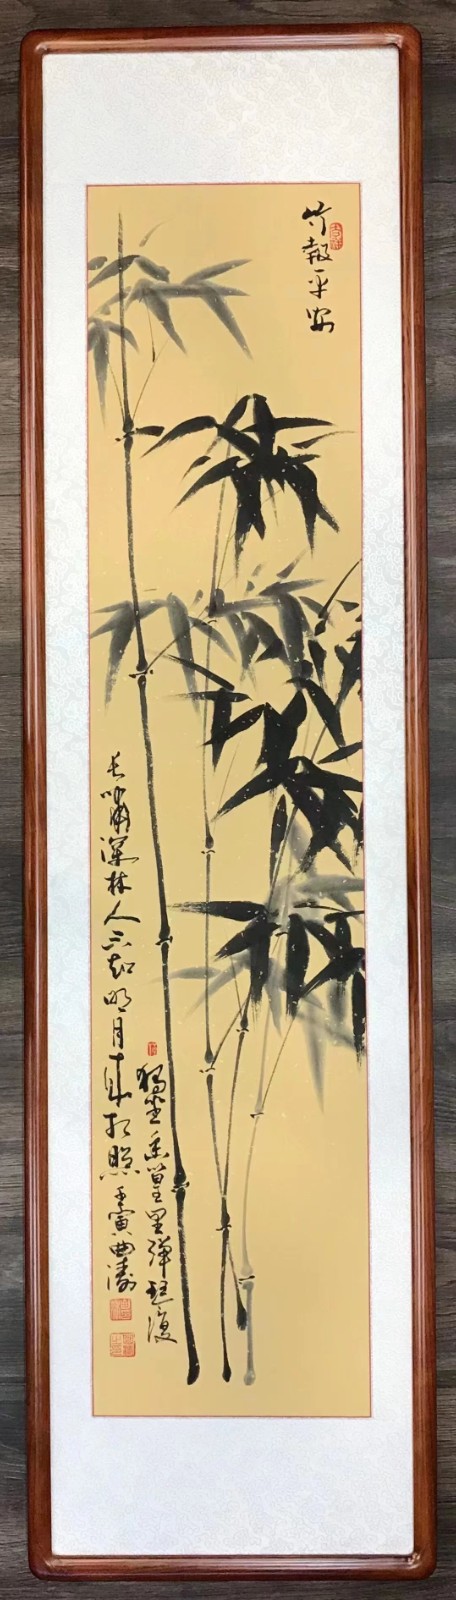 竹報平安
獨坐幽篁里彈琴復
長嘯深林人不知明月來相照 壬寅曲濤